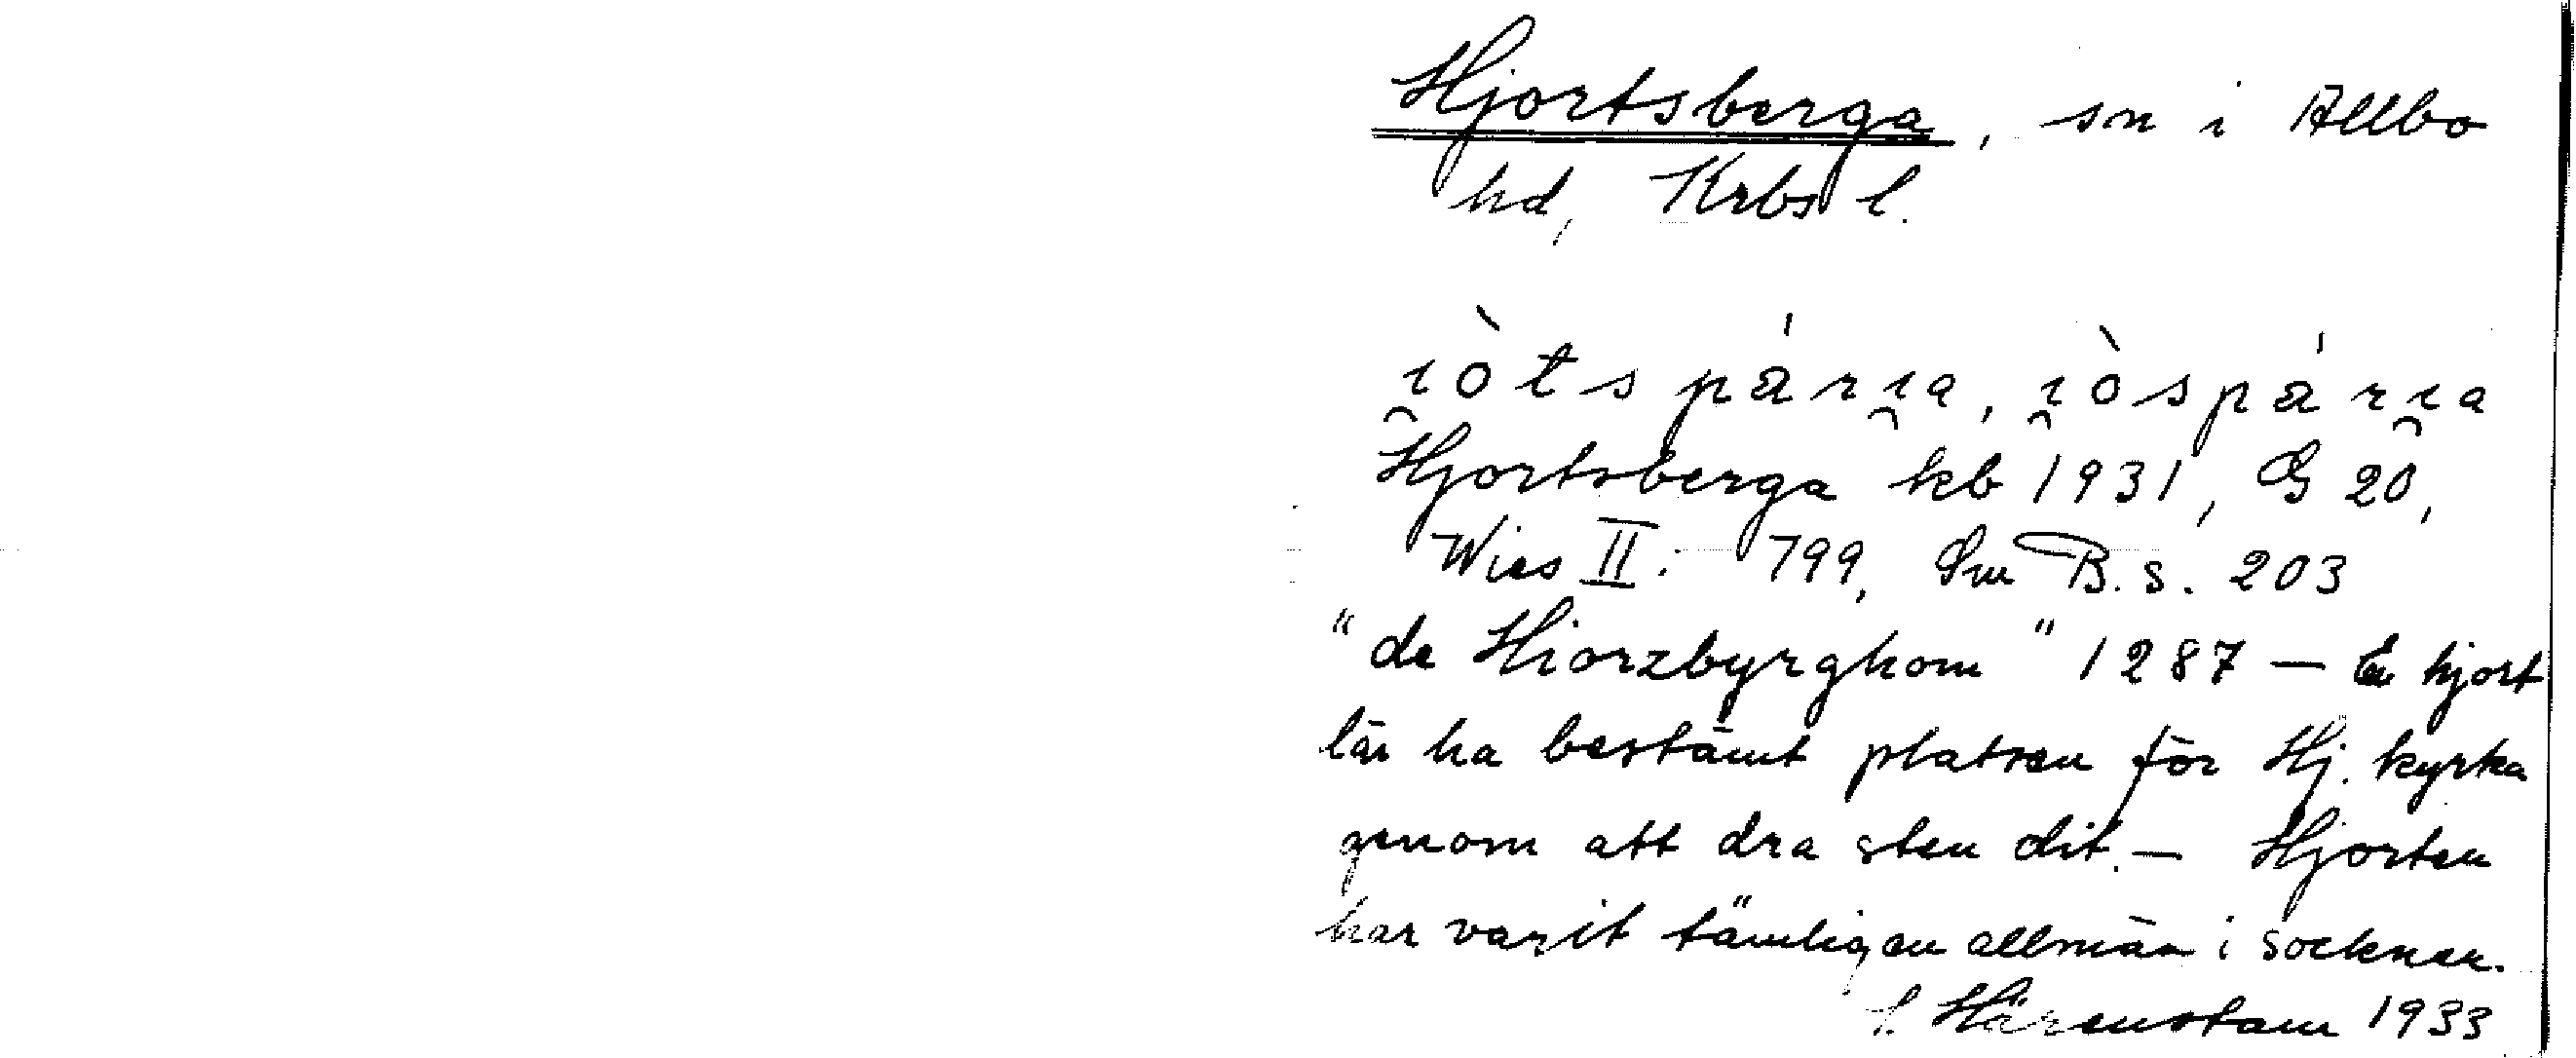 Hjortsberga, sn i Allbo
hd, Krbs l.
i̯ò̀tspá̀ri̯a, i̯ò̀spári̯a
Hjortsberga kb 1931, G 20,
Wies II: 799, Sm B. s. 203
"de Hiorzbyrghom" 1287 — En hjort
lär ha bestämt platsen för Hj. kyrka
genom att dra sten dit. — Hjorten
har varit tämligen allmän i socknen.
Härenstam 1933